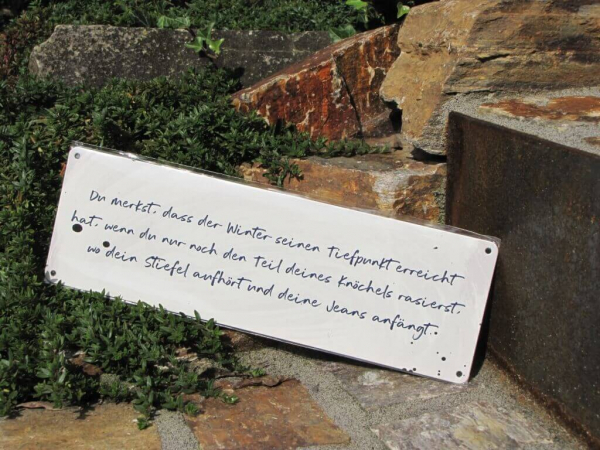 Du merkst, dass der Winter seinen Tiefpunkt erreicht
hat, wenn du nur noch den Teil deines Knöchels rasierst,
wo dein Stiefel aufhört und deine Jeans anfängt.